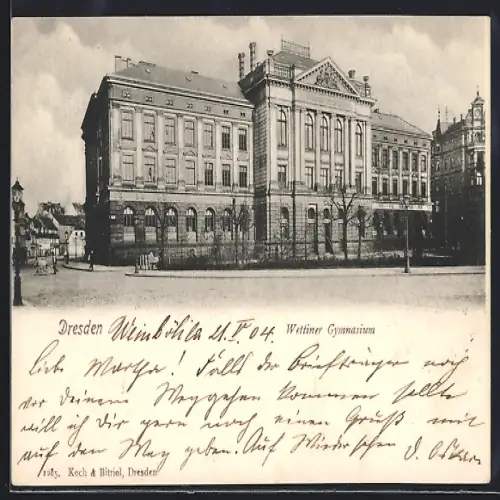 Dresden Weinböhla 21. V 04. Wettiner Gymnasium
Liebe Martha! Falls der Briefträger noch
vor deinem Weggehen kommen sollte
will ich Dir gern noch einen Gruß mit
auf den Weg geben. Auf Wiedersehen D.
1285. Koch & Bitriol, Dresden